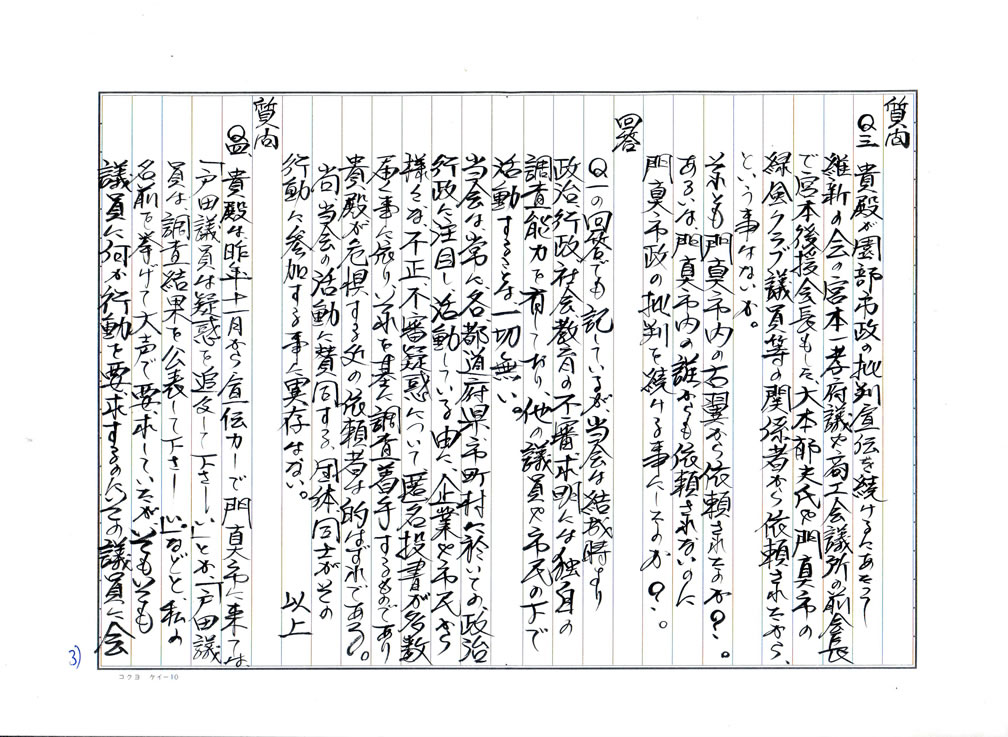 質問
Q三 貴殿が園部市政批判宣伝を続けるにあたって
維新の会の宮本一孝府議や商工会議所の前会長
で宮本後援会長もした大本郁夫氏や門真市の
緑風クラブ議員等の関係者から依頼されたから、
という事はないか。
それとも門真市内の右翼から依頼されたのか?。
あるいは、門真市内の誰からも依頼されないのに
門真市政の批判を続ける事にしたのか?。
回答
Q一の回答でも記しているが、当会は結成時より
政治行政社会教育の不審求明には独自の
調査能力を有しており、他の議員や市民の下で
活動することは、一切無い。
当会は常に各都道府県市町村に於いての政治
行政に注目し、活動している由に、企業や市民から
様々な、不正、不審疑惑について匿名投書が多数
届く事に依り、それを基に調査着手するものであり
貴殿が危惧する処の依頼者は的はずれである。
尚当会の活動に賛同する、団体同士がその
行動に参加する事に異存はない。
以上
質問
Q四、貴殿は昨年十一月から宣伝カーで門真市に来ては
「戸田議員は疑惑を追及して下さーい」とか、「戸田議
員は、調査結果を公表して下さーい」などと、私の
名前を挙げて大声で要求していたが、そもそも
議員に何か行動を要求するのにその議員に会
3)
コクヨ ケイー10